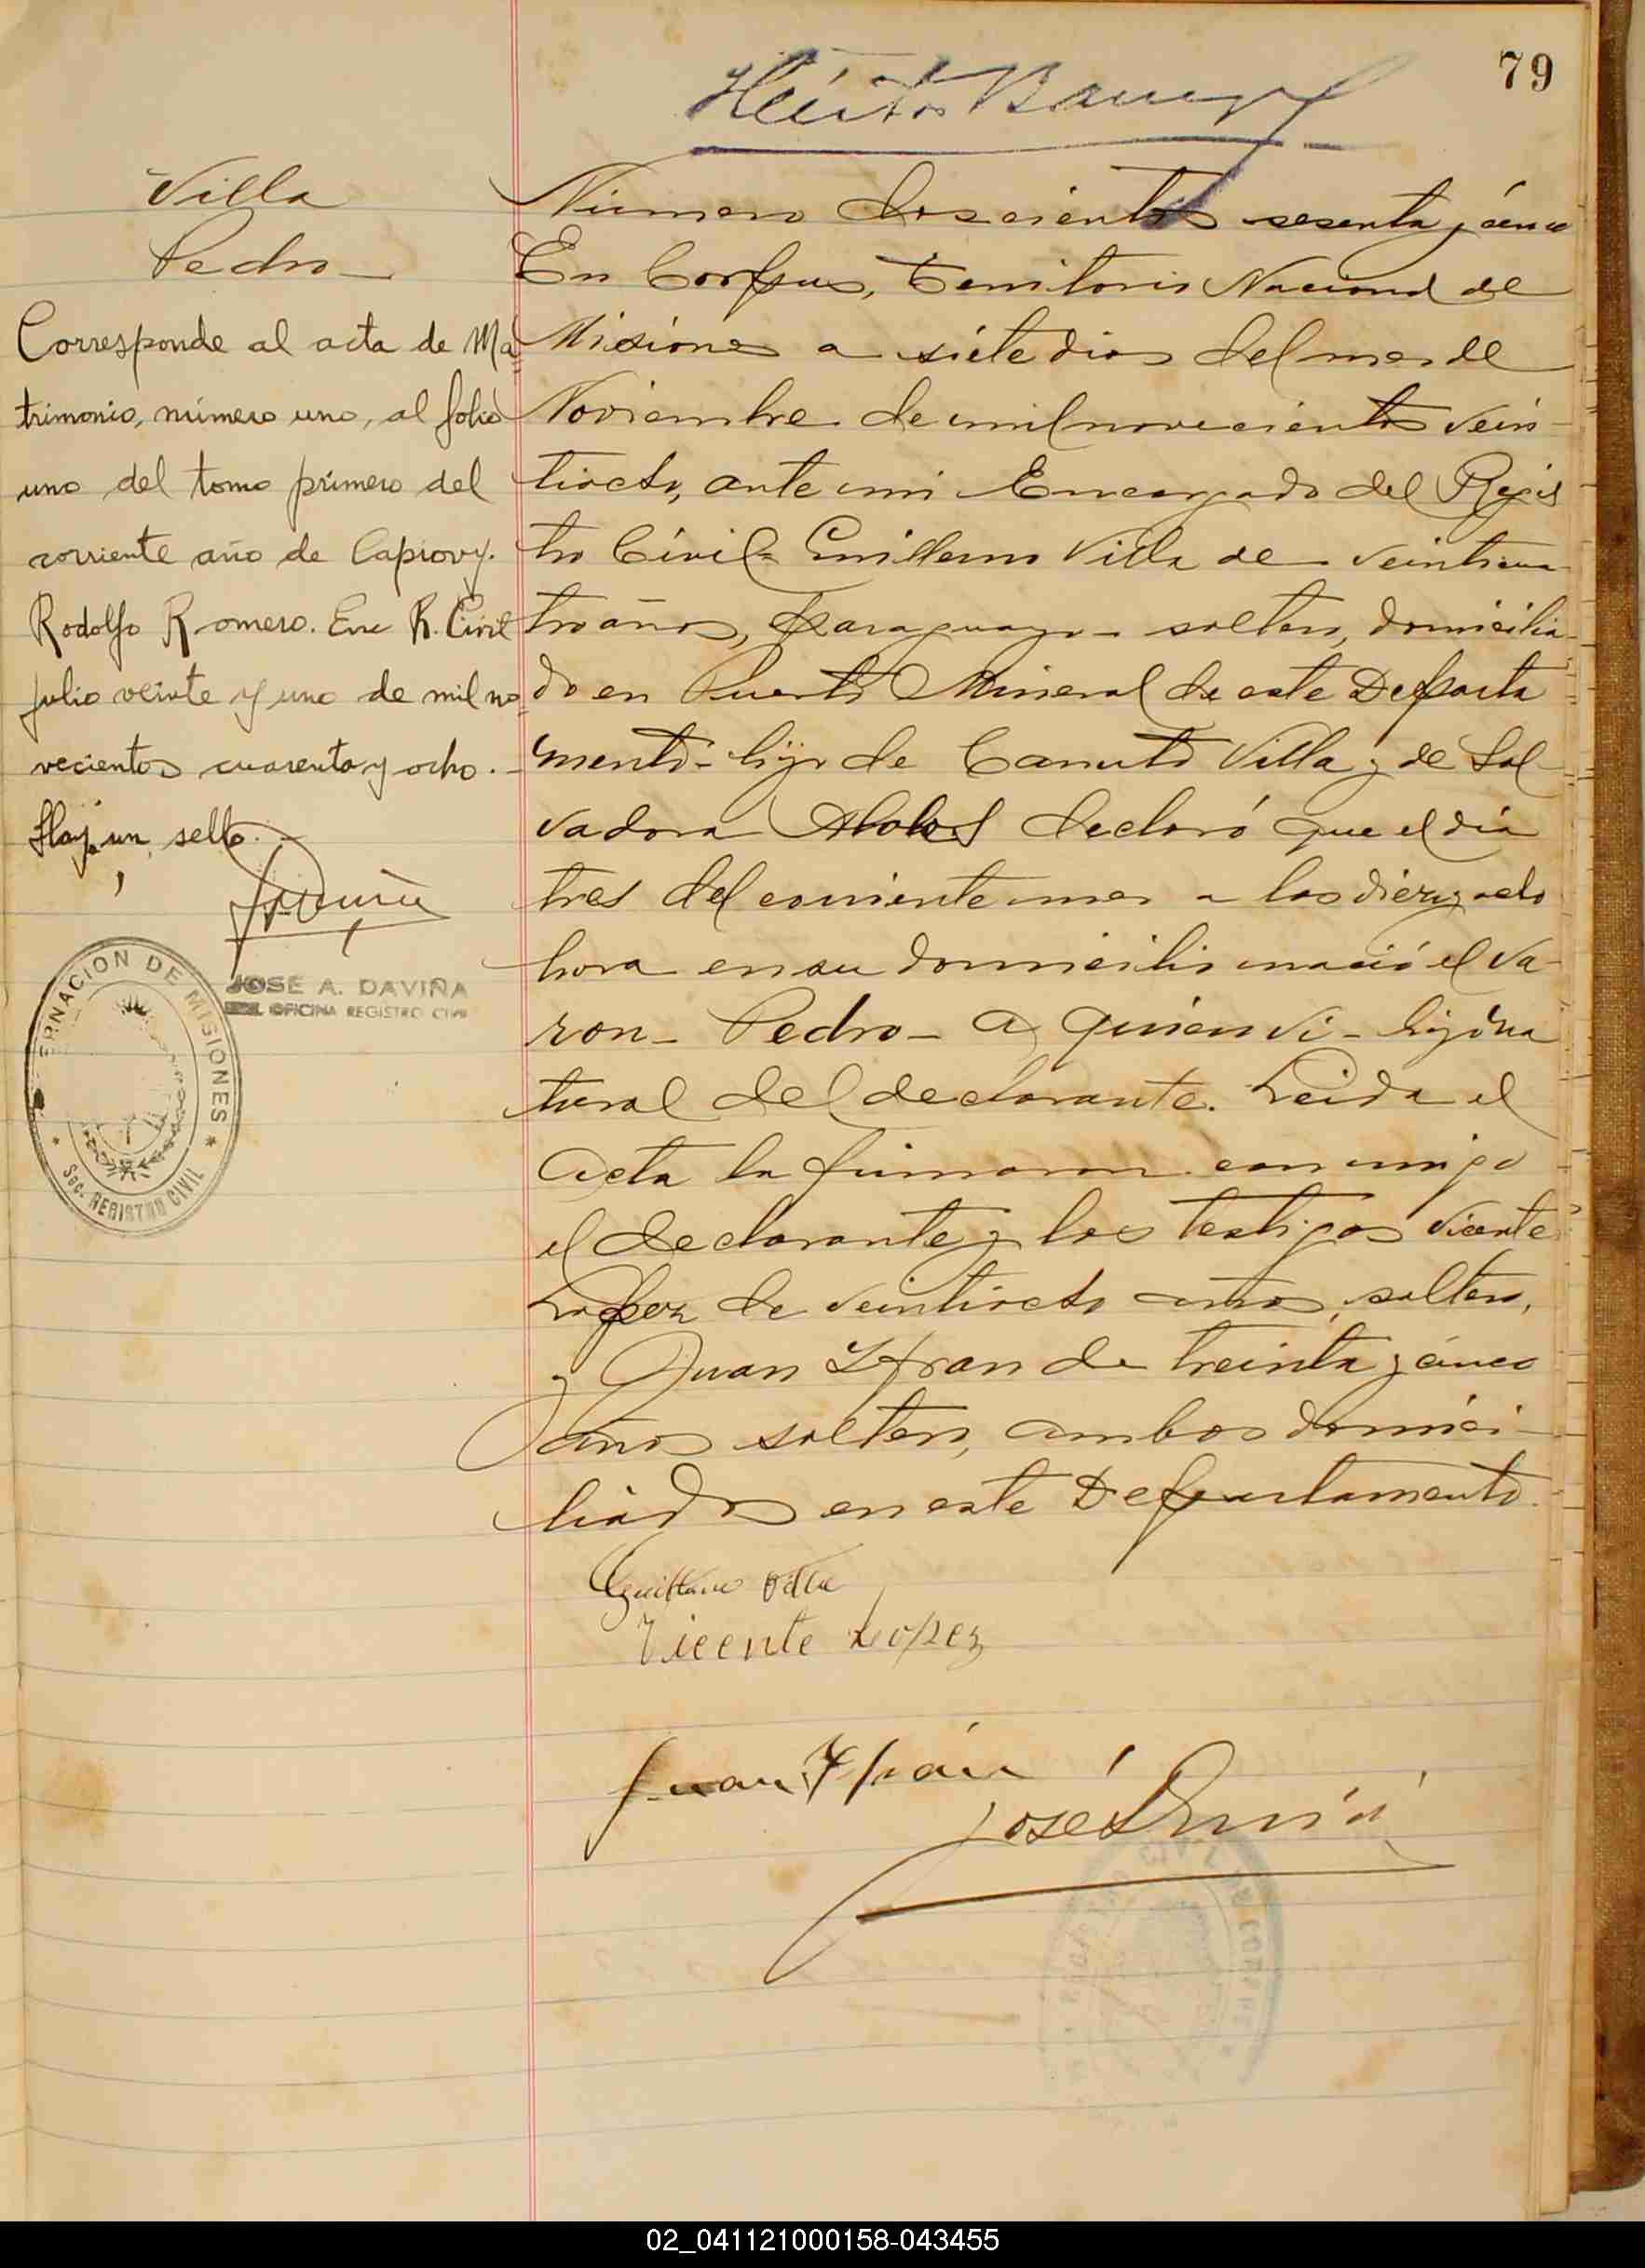 79
Villa
Pedro
Corresponde al acta de Ma=
trimonio, número uno, al folio
uno del tomo primero del
corriente año de Capiovy.
Rodolfo Romero. Enc R. Civil
julio veinte y uno de mil no=
vecientos cuarenta y ocho.-
Hay un sello.-
JOSE A. DAVIÑA
OFICINA REGISTRO CIVIL
ERNACION DE MISIONES
Sec. REGISTRO CIVIL
Número doscientos sesenta y cinco
En Corpus, Territorio Nacional de
Misiones a siete dias del mes de
Noviembre de mil novecientos vein-
tiocho, ante mi Encargado del Regis
tro Civil= Guillermo Villa de veinticua-
tro años, paraguayo- soltero, domicilia-
do en Puerto Mineral de este Departa
mento- hijo de Canuto Villa y de Sal-
vadora declaró que el dia
tres del corriente mes a las diez y ocho
hora en su domicilio nació el va-
ron- Pedro- a quien vi- hijo na
tural del declarante. Leida el
acta la firmaron conmigo
el declarante y los testigos Vicente
Lopez de veintiocho años, soltero,
y Juan Yfran de treinta y cinco
años soltero, ambos domici-
liados en este Departamento.
Guillermo Villa
Vicente Lopez
Juan Yfrán
José
02_041121000158-043455